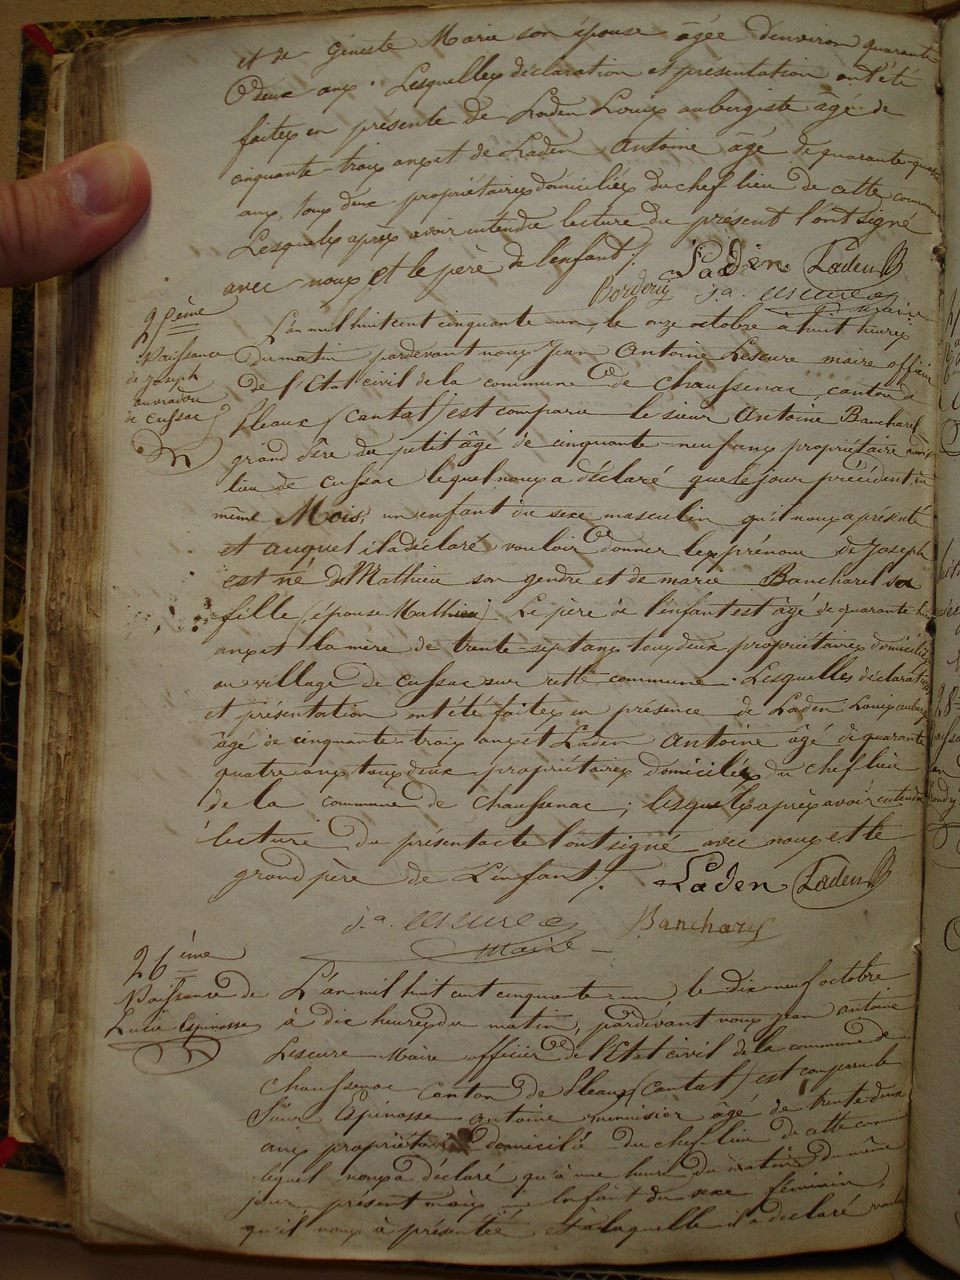 et de Gineste Marie son épouse âgée d'environ quarante
deux ans. Lesquelles déclaration et présentation ont été
faites en présence de Laden Louis aubergiste âgé de
cinquante-trois ans et de Laden Antoine âgé de quarante-quatre
ans, tous deux propriétaires domiciliés du chef lieu de cette commune
Lesquels après avoir entendu lecture du présent l'ont signé
avec nous et le père de l'enfant /.
Laden Laden
Borderÿ j.a. Lescure
maire
25ème
Naissance
de Joseph
de Cussac
L'an mil huit cent cinquante un, le onze octobre à huit heures
du matin pardevant nous Jean Antoine Lescure maire officier
de l'Etat civil de la commune de Chaussenac canton de
Pleaux (Cantal) est comparu le sieur Antoine Bancharel
grand père du petit âgé de cinquante-neuf ans propriétaire
lieu de Cussac lequel nous a déclaré que le jour précédent du
même Mois, un enfant du sexe masculin qu'il nous a présenté
et auquel il a déclaré vouloir donner les prénom de Joseph
est né de Mathieu son gendre et de marie Bancharel sa
fille (épouse Mathieu) Le père de l'enfant est âgé de quarante
ans et la mère de trente-sept ans tous deux propriétaires domiciliés
au village de Cussac sur cette commune. Lesquelles déclaration
et présentation ont été faites en présence de Laden Louis
âgé de cinquante-trois ans et Laden Antoine âgé de quarante
quatre ans tous deux propriétaires domiciliés du chef lieu
de la commune de Chaussenac; lesquels après avoir entendu
lecture du présent acte l'ont signé avec nous et le
grand père de L'enfant /.
Laden Laden
j.a. Lescure Bancharel
Maire
26ème
Naissance de
Lucie Espinasse
L'an mil huit cent cinquante-un, le dix-neuf octobre
à dix heures du matin, pardevant nous jean antoine
Lescure Maire officier de l'Etat civil de la commune de
Chaussenac Canton de Pleaux (Cantal) est comparu le
Sieur Espinasse antoine menuisier âgé de trente-deux
ans propriétaire domicilié du chef lieu de cette commune
lequel nous a déclaré qu'à une heure du matin du même
jour présent mois un Enfant du sexe féminin,
qu'il nous à présenté et à laquelle il a déclaré